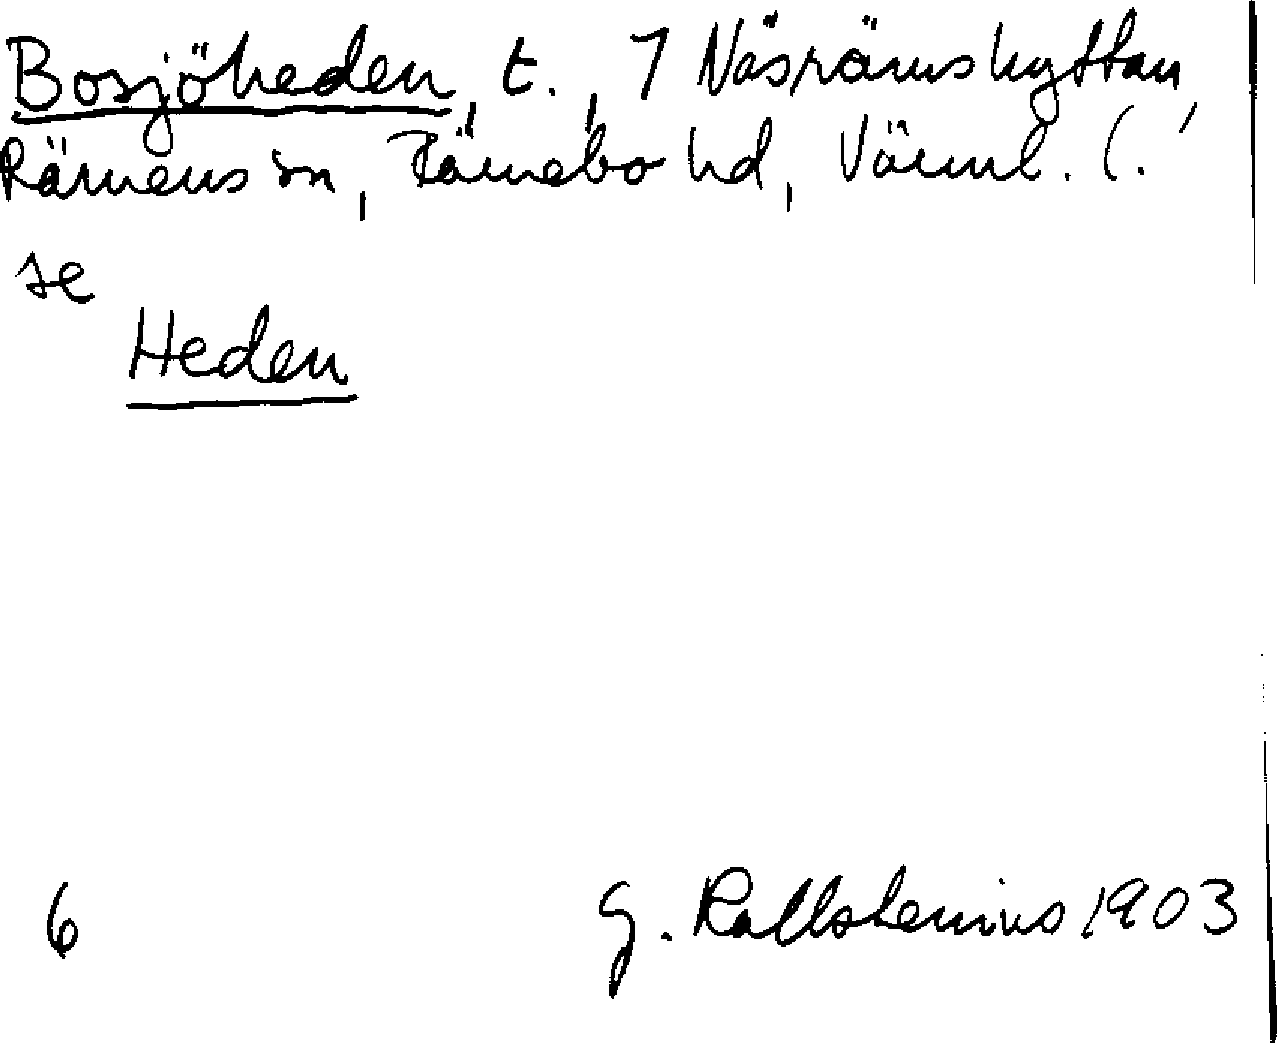 Bosjöheden, t., 7 Näsrämshyttan,
Rämens sn, Färnebo hd, Värml. l.
se
Heden
6
G. Kallstenius 1903